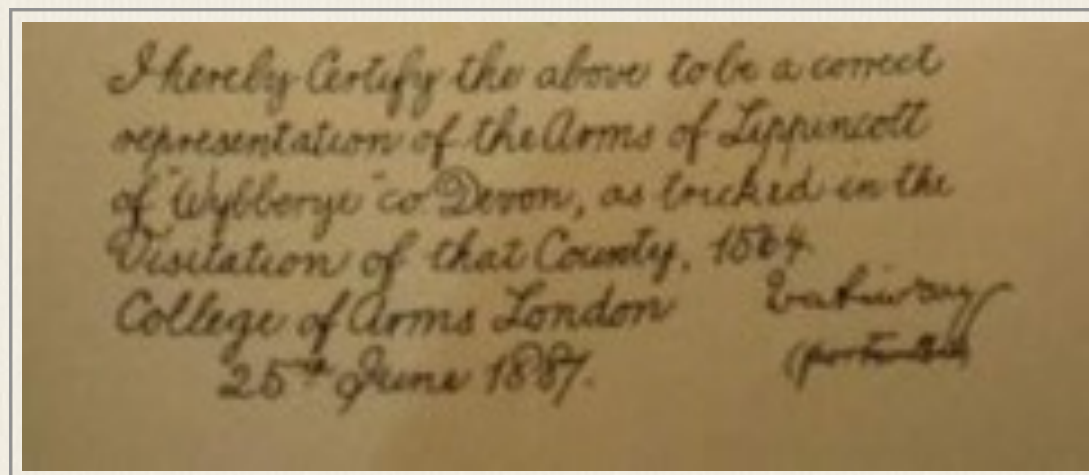 I hereby Certify the above to be a correct
representation of the Arms of Lippincott
of "Wybberye" co Devon, as tricked in the
Visitation of that County, 1564
College of Arms London
25th June 1887.